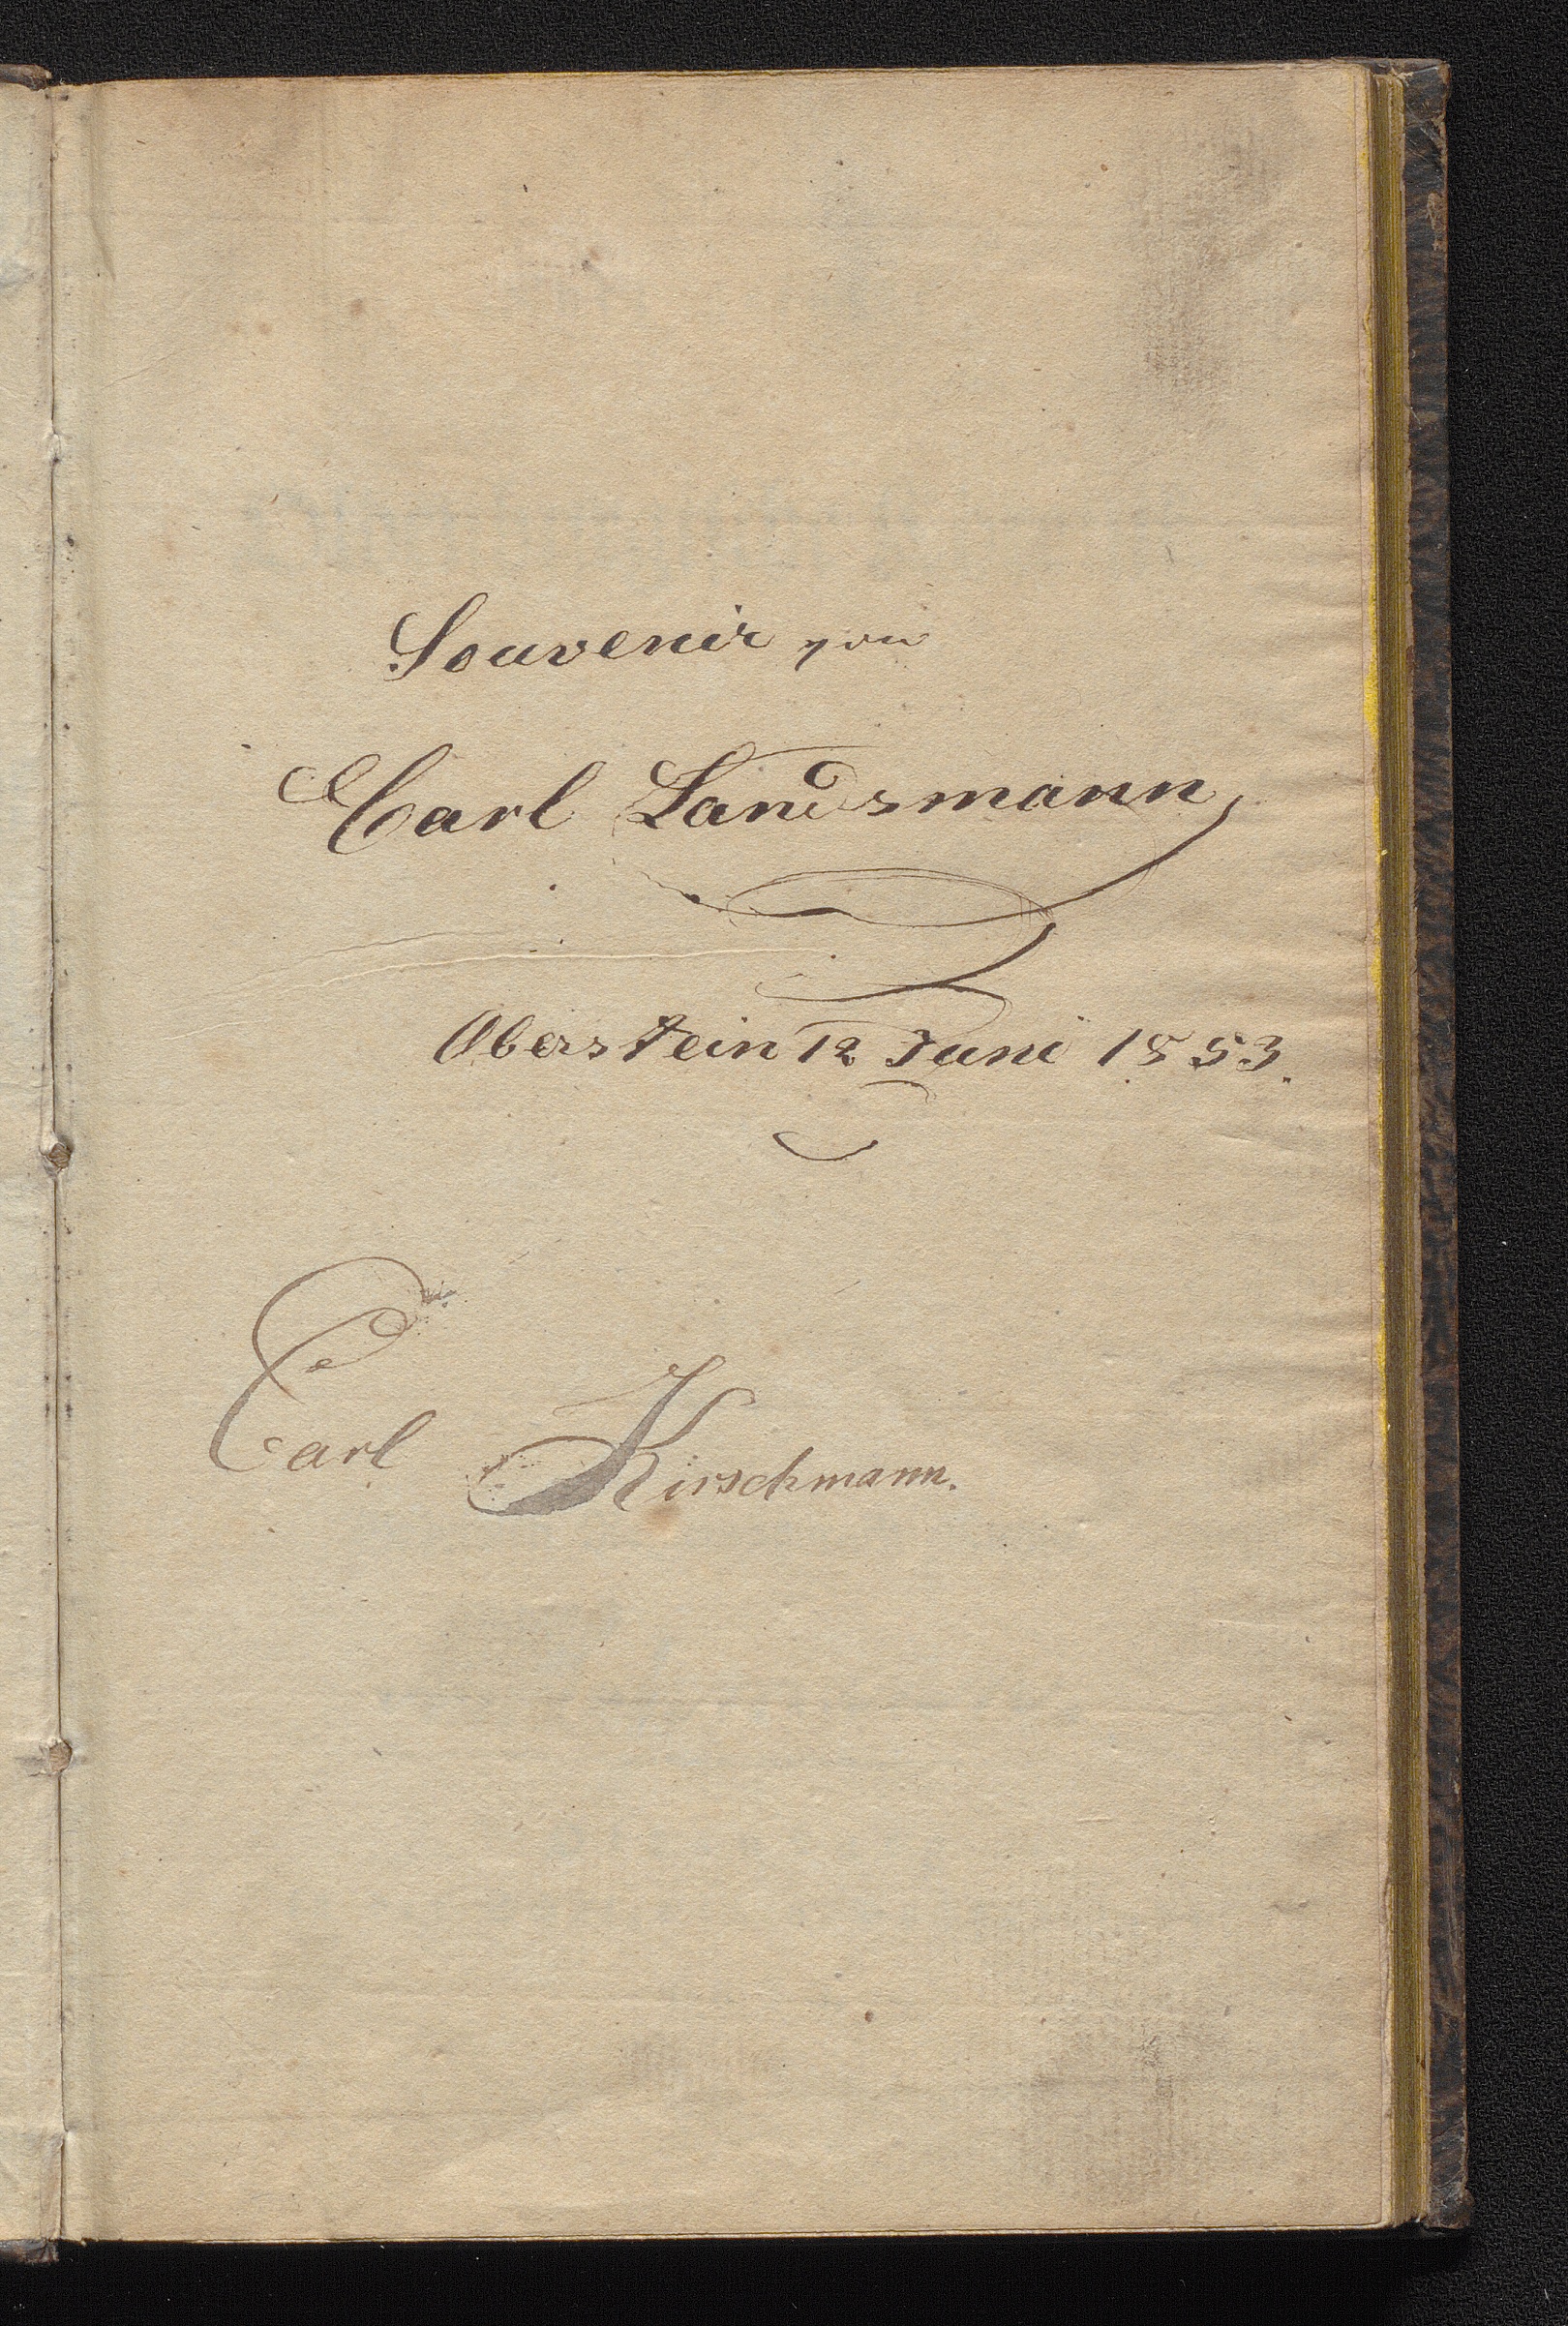 Souvenir von
Carl Landsmann
Oberstein 12 Juni 1853.
Carl Kirschmann.